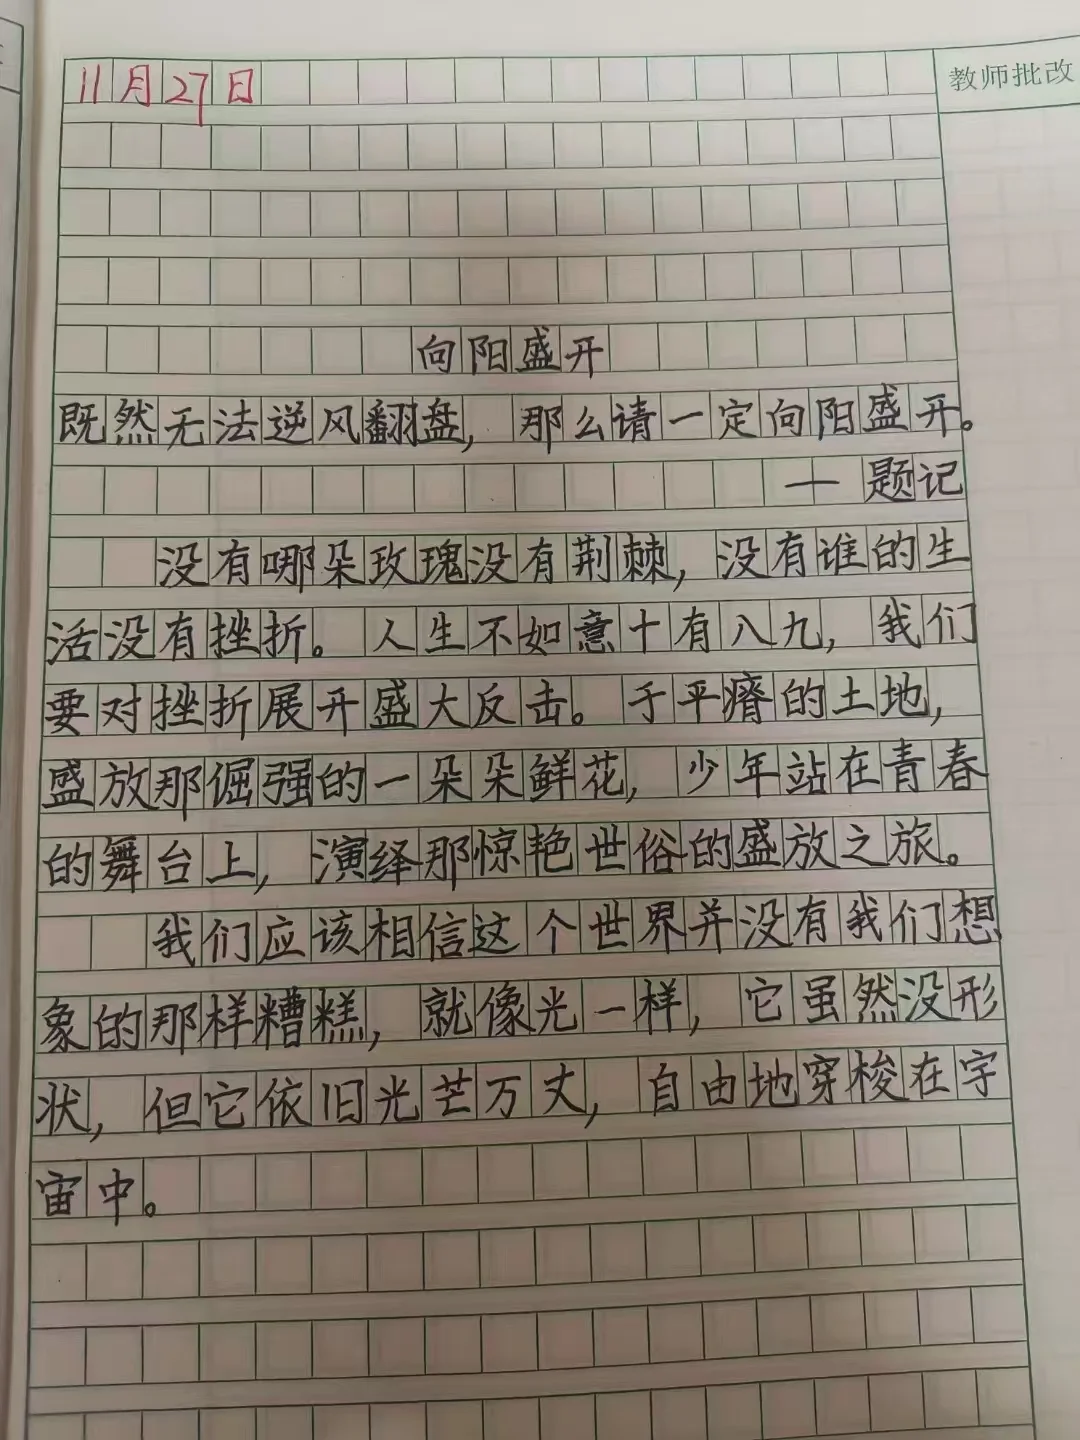 11月27日
教师批改
向阳盛开
既然无法逆风翻盘，那么请一定向阳盛开。
——题记
没有哪朵玫瑰没有荆棘，没有谁的生
活没有挫折。人生不如意十有八九，我们
要对挫折展开盛大反击。于平瘠的土地，
盛放那倔强的一朵朵鲜花，少年站在青春
的舞台上，演绎那惊艳世俗的盛放之旅。
我们应该相信这个世界并没有我们想
象的那样糟糕，就像光一样，它虽然没形
状，但它依旧光芒万丈，自由地穿梭在宇
宙中。